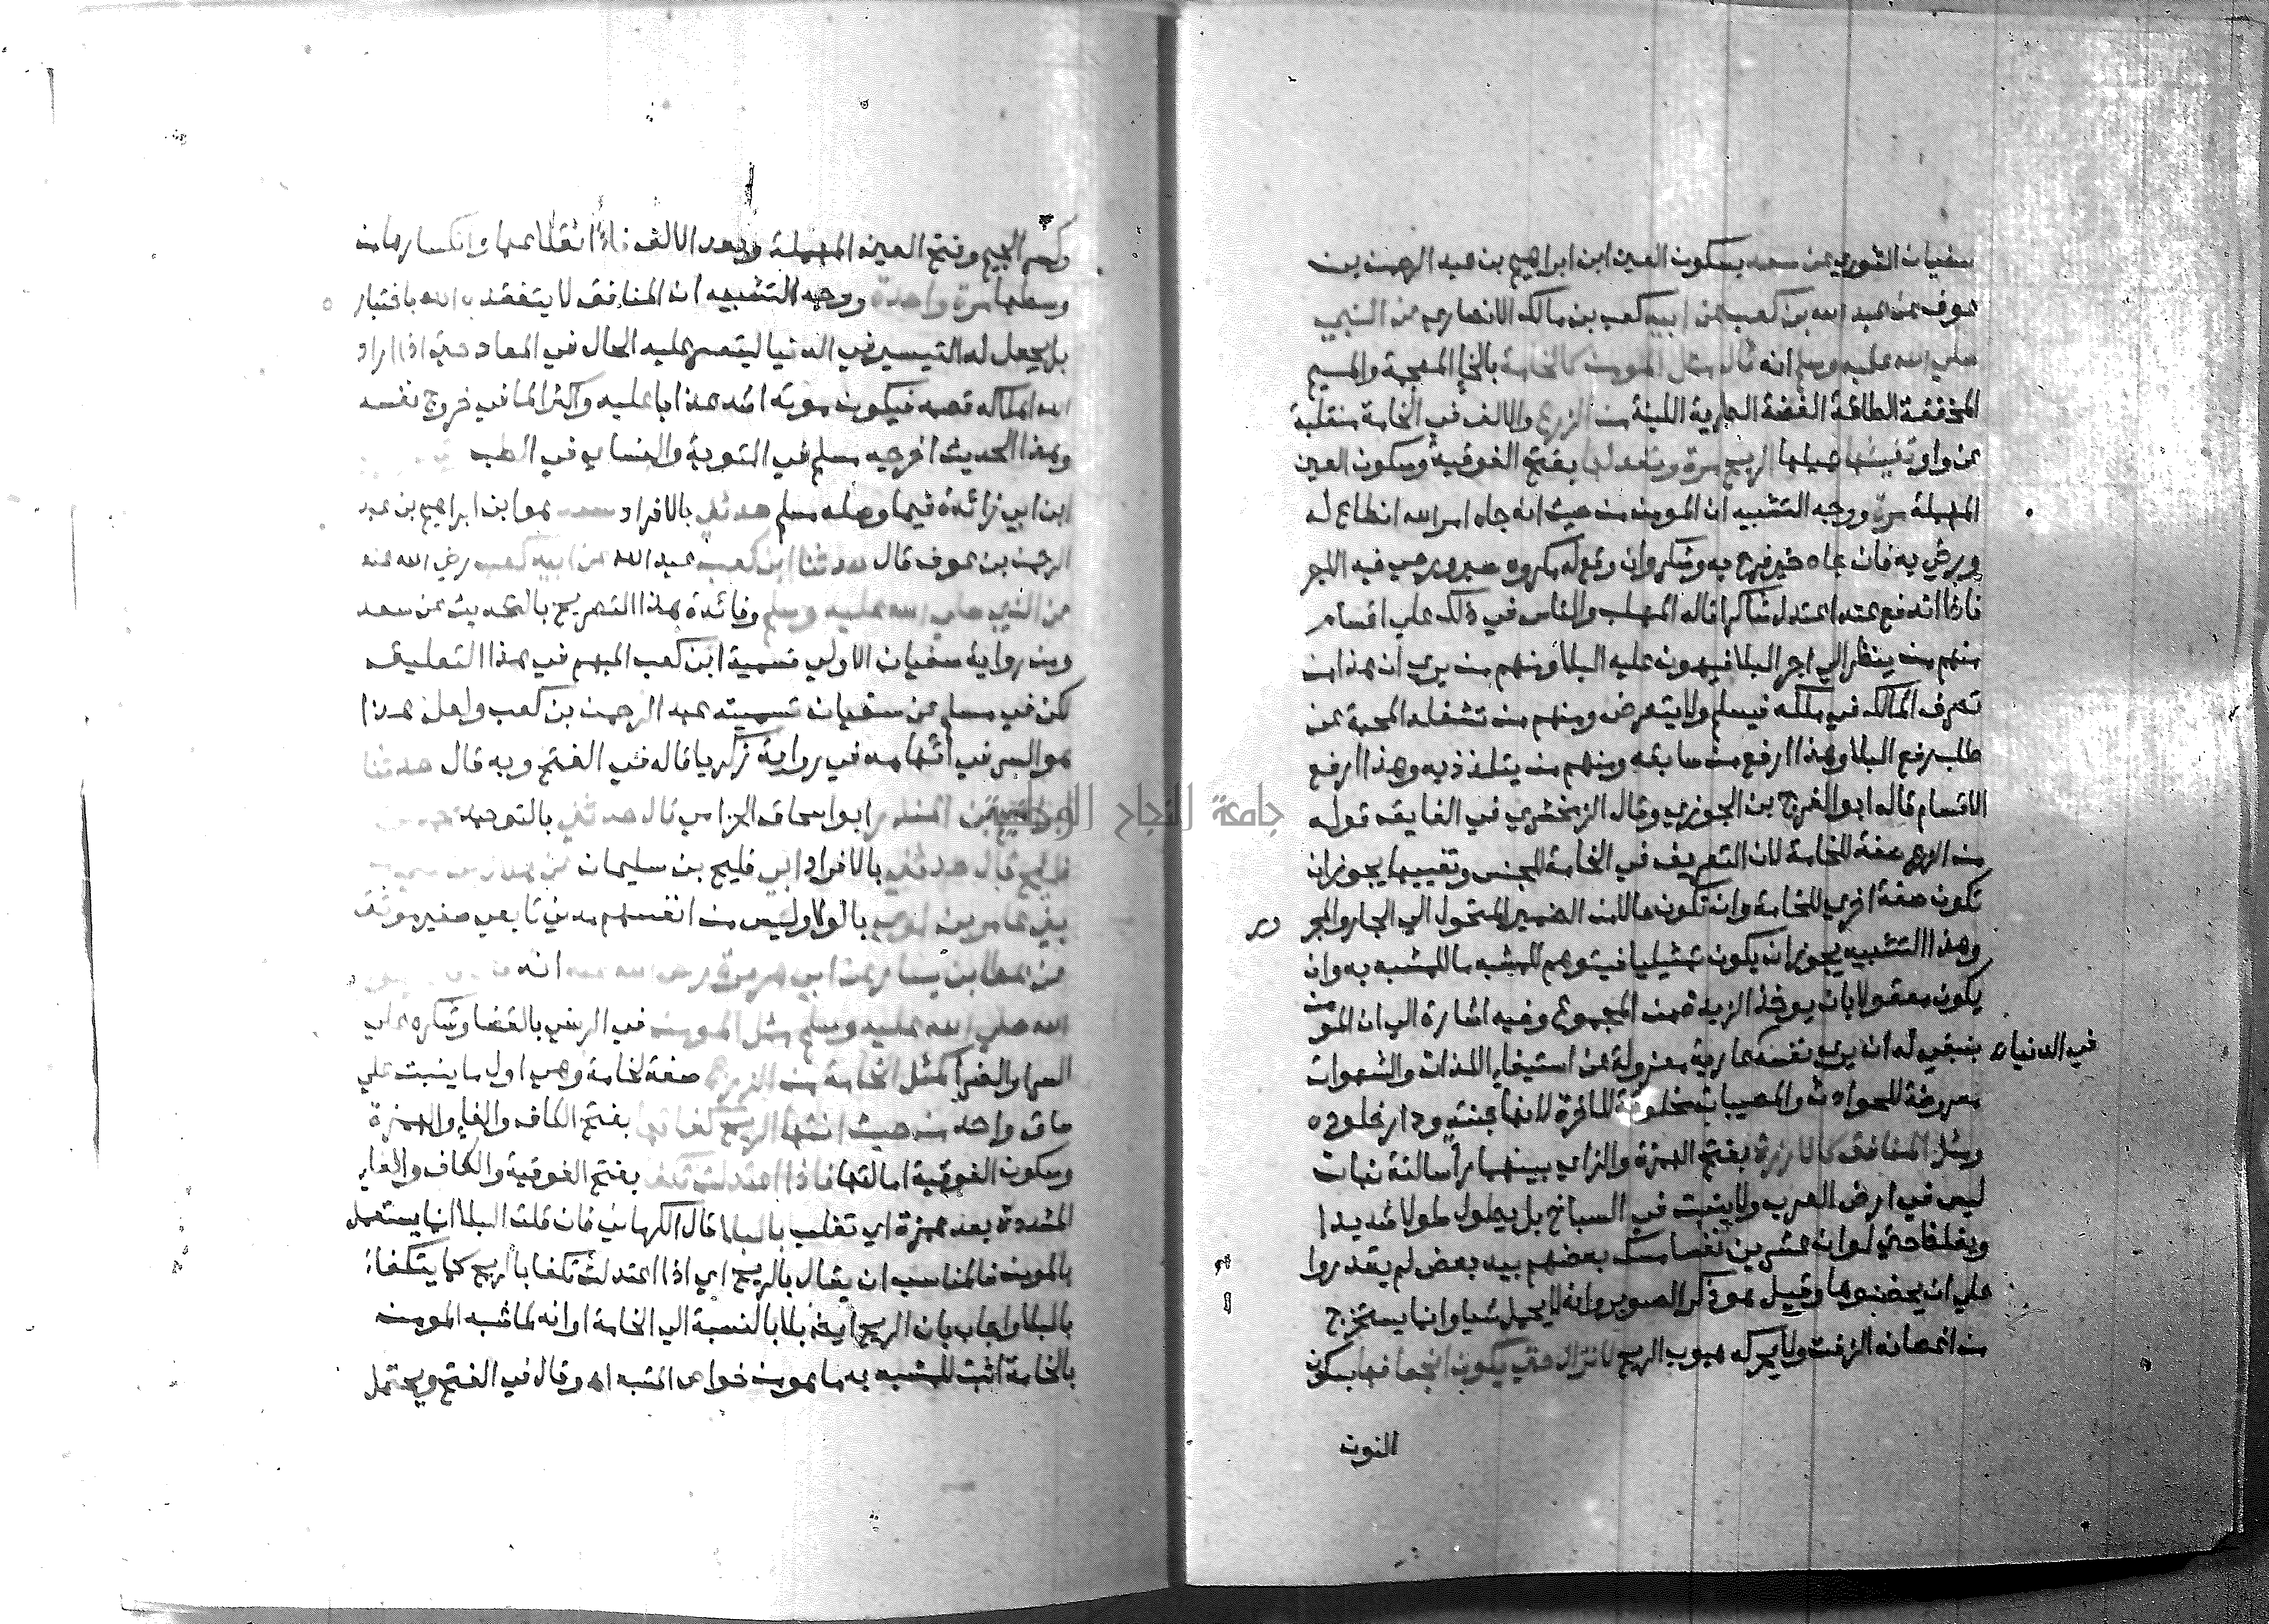 سفيان الثوري عن سعد بسكون العين ابن ابراهيم بن عبد الرحمن بن
عوف عن عبد الله بن كعب عن ابيه كعب بن مالك الانصاري عن النبي
صلي الله عليه وسلم انه قال مثل المومن كالخامة بالخا المعجمة والميم
المخففة الطاقة الغضة الطرية اللينة من الزرع والالف في الخامة منقلبة
عن واو تفيئها تميلها الريح مرة وتعدلها بفتح الفوقية وسكون العين
المهملة مرة ووجه التشبيه ان المومن من حيث انه جاه امر الله انطاع له
ورضي به فان جاه خير فرح به وشكر وان وقع له مكروه صبر ورجي فيه الاجر
فاذا اندفع عنه اعتدل شاكرا قاله المهلب والناس في ذلك علي اقسام
منهم من ينظر الي اجر البلا فيهون عليه البلا ومنهم من يري ان هذا من
تصرف المالك في ملكه فيسلم ولا يتعرض ومنهم من تشغله المحبة عن
طلب رفع البلا وهذا ارفع من سابقه ومنهم من يتلذذ به وهذا ارفع
الاقسام قاله ابو الفرج بن الجوزي وقال الزمخشري في الفايق قوله
من الزرع صفة للخامة لان التعريف في الخامة للجنس وتفييها يجوز ان
تكون صفة اخري للخامة وان تكون حالا من الضمير المتحول الي الجار والمجر ور
وهذا التشبيه يجوز ان يكون تمثيليا فيتوهم للمشبه ما للمشبه به وان
يكون معقولا بان يوخذ الزبدة من المجموع وفيه اشارة الي ان المو من
ينبغي له ان يري نفسه في الدنيا عارية معزولة عن استيفاء اللذات والشهوات
معروضة للحوادث والمصيبات مخلوقة للاخرة لانها جنته ودار خلوده
ومثل المنافق كالارزة بفتح الهمزة والزاي بينهما راساكنة نبات
ليس في ارض العرب ولا ينبت في السباخ بل يطول طولا شديدا
ويغلظ حتي لوان عشرين نفسا مسك بعضهم بيد بعض لم يقدروا
علي ان يحضنوها وقيل هو ذكر الصنوبر وانه لا يحمل شيا وانما يستخرج
من اغصانه الزفت ولا يحركه هبوب الريح لا تزال حتي يكون انجعافها بسكون
النون
وكسر الجيم وفتح العين المهملة وبعد الالف فا انقلاعها وانكسارها من
وسطها مرة واحدة ووجه التشبيه ان المنافق لا يتفقده الله باختبار
بل يجعل له التيسير في الدنيا ليتعسر عليه الحال في المعاد حتي اذا اراد
الله اهلاكه قصمه فيكون موته اشد عذابا عليه واكثر الما في خروج نفسه
وهذا الحديث اخرجه مسلم في التوبة والنساي في الطب
ابن ابي زائدة فيما وصله مسلم حدثني بالافراد سعد هو ابن ابراهيم بن عبد
الرحمن بن عوف قال حدثنا ابن كعب عبد الله عن ابيه كعب رضي الله عنه
عن النبي صلي الله عليه وسلم وفائدة هذا التصريح بالتحديث عن سعد
ومن رواية سفيان الاولي تسمية ابن كعب المبهم في هذا التعليق
لكن في مسلم عن سفيان تسميته عبد الرحمن بن كعب ولعل هذا
هو السر في ابهامه في رواية زكريا قاله في الفتح وبه قال حدثنا
ابراهيم بن المنذر ابو اسحاق الحزامي قال حدثني بالتوحيد محمد بن
فليح قال حدثني بالافراد ابي فليح بن سليمان عن هلال بن علي
بني عامر بن لوي بالولا وليس من انفسهم مدني تابعي صغير موثق
عن عطا بن يسار عن ابي هريرة رضي الله عنه انه
الله صلي الله عليه وسلم مثل المومن في الرضي بالقضا وشكره علي
السرا والضرا كمثل الخامة من الزرع صفة لخامة وهي اول ما ينبت علي
ساق واحد من حيث اتتها الريح كفاتها بفتح الكاف والفاء والهمزة
وسكون الفوقية امالتها فاذا اعتدلت تكفا بفتح الفوقية والكاف والفاء
المشددة بعدها همزة اي تقلب بالبلا قال الكرماني فان قلت البلا انما يستعمل
بالمومن فالمناسب ان يقال بالريح اي اذا اعتدلت تكفا بالريح كما يتكفا
بالبلا واجاب بان الريح ايضا بلا بالنسبة الي الخامة او انه لما شبه المومن
بالخامة اثبت للمشبه به ما هو من خواص المشبه اه وقال في الفتح ويحتمل